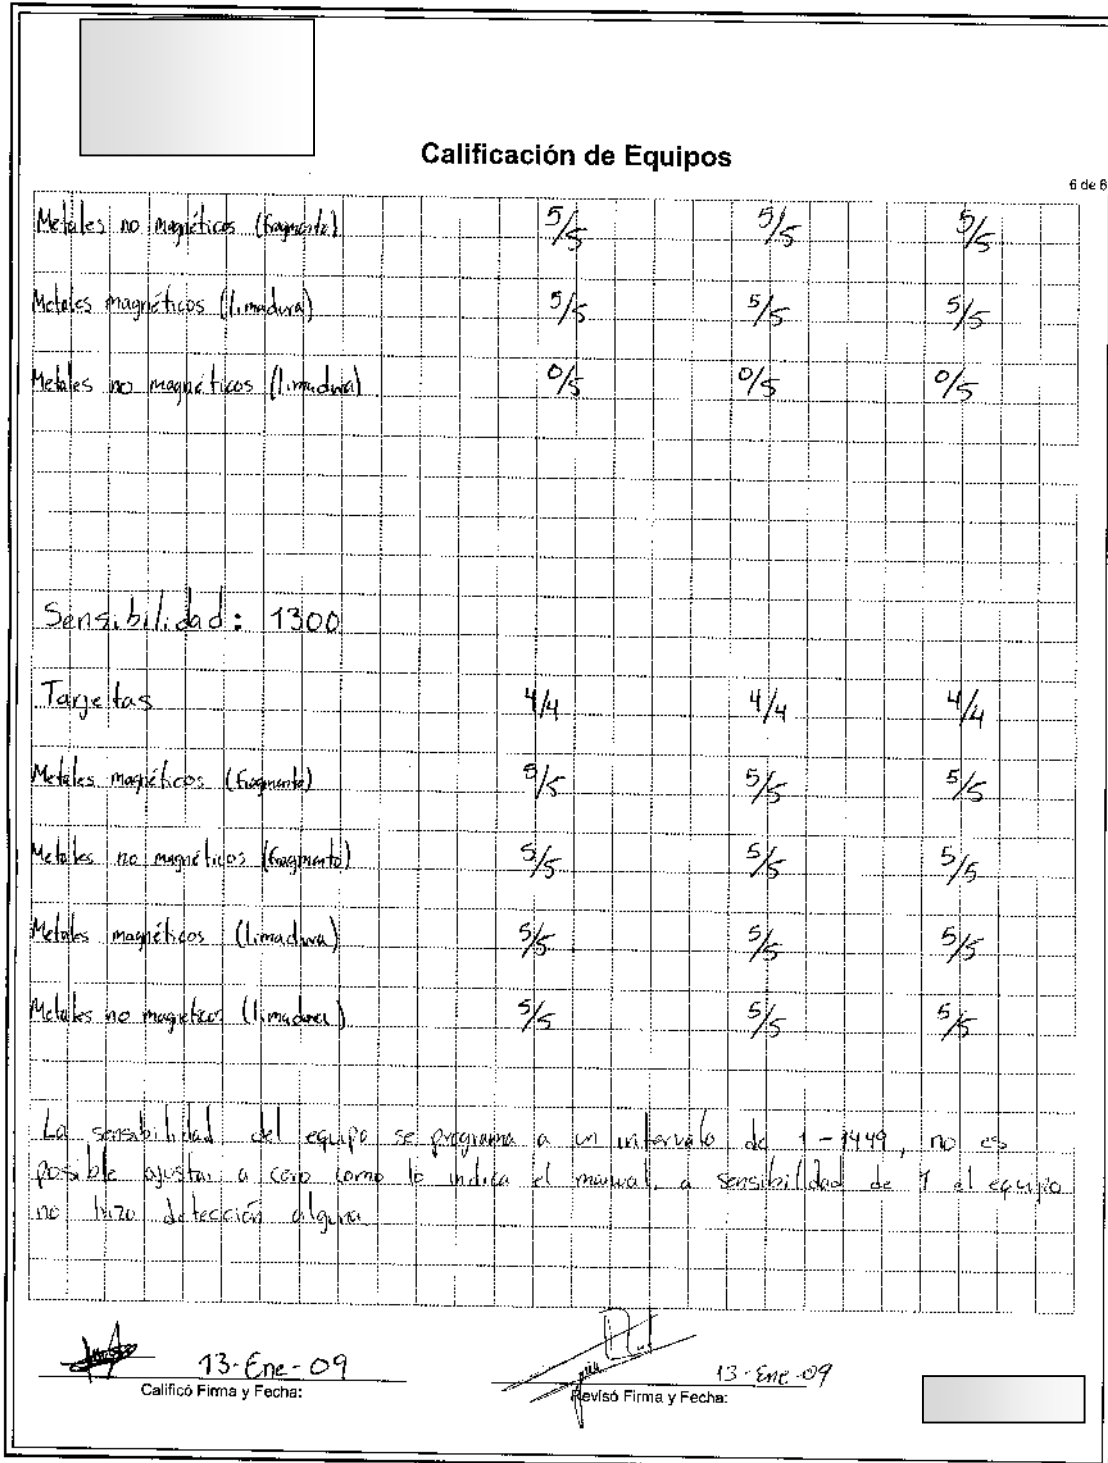 Calificación de Equipos
6 de 8
Metales no magnéticos (fragmento) 5/5 5/5 5/5
Metales magnéticos (limadura) 5/5 5/5 5/5
Metales no magnéticos (limadura) 0/5 0/5 0/5
Sensibilidad: 1300
Targetas 4/4 4/4 4/4
Metales magnéticos (fragmento) 5/5 5/5 5/5
Metales no magnéticos (fragmento) 5/5 5/5 5/5
Metales magnéticos (limadura) 5/5 5/5 5/5
Metales no magneticos (limadura) 5/5 5/5 5/5
La sensibilidad del equipo se programa a un intervalo de 1-1449, no es
posible ajustar a cero como lo indica el manual, a sensibilidad de 1 el equipo
no hizo detección alguna
13-Ene-09
Calificó Firma y Fecha:
13-Ene-09
Revisó Firma y Fecha: